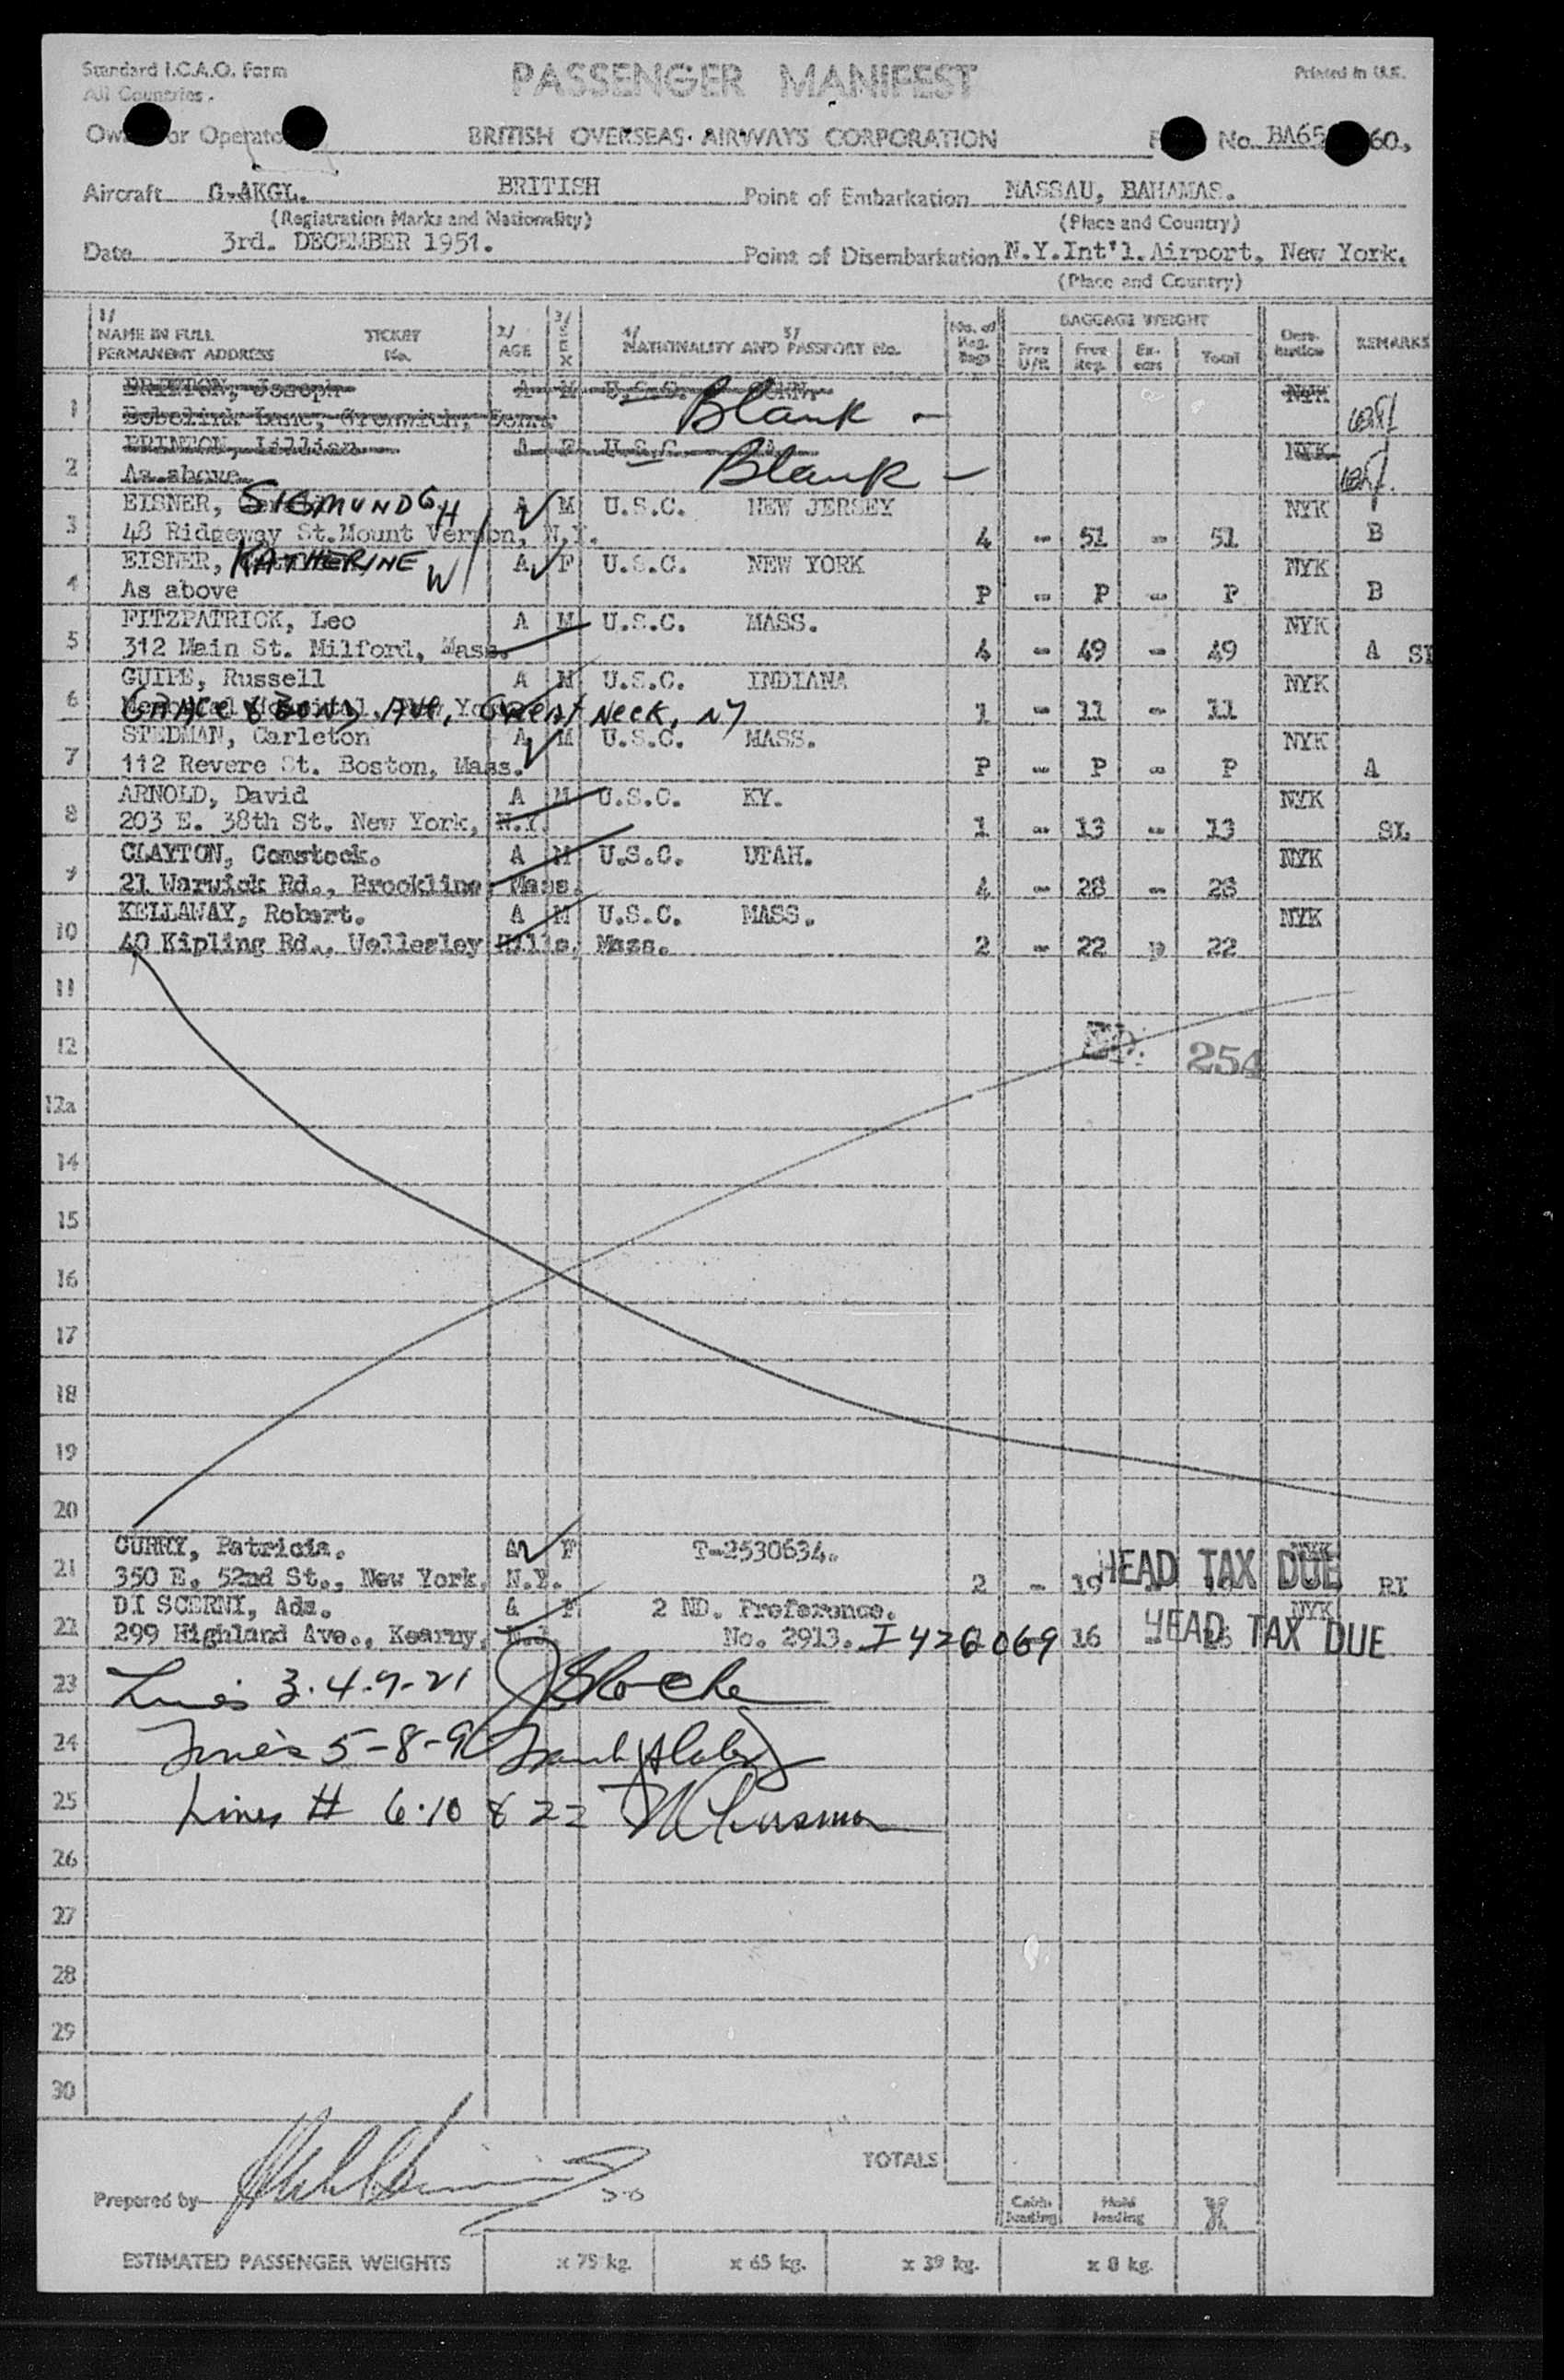 Standard I.C.A.O. Form
All Countries.
Printed in U.K.
PASSENGER MANIFEST
or Operator
BRITISH OVERSEAS AIRWAYS CORPORATION
No. BA65 60.
Aircraft G-AKGL. BRITISH
(Registration Marks and Nationality)
Point of Embarkation NASSAU, BAHAMAS.
(Place and Country)
Date 3rd. DECEMBER 1951.
Point of Disembarkation N.Y.Int'l.Airport, New York.
(Place and Country)
1/ NAME IN FULL PERMANENT ADDRESS TICKET No. 2/ AGE 3/ SEX 4/ 5/ NATIONALITY AND PASSPORT No. No. of Reg. Bags BAGGAGE WEIGHT Free U/R Free Reg. Ex-cess Total Dest-ination REMARKS
1 Joseph A M U.S.C. CONN. NYK
Bobolink Lane, Greenwich, Conn. Blank -
2 BRINTON, Lillian A F U.S.C. NYK
As above Blank -
3 EISNER, SIGMUND G H A M U.S.C. NEW JERSEY NYK
48 Ridgeway St.Mount Vernon, N.Y. 4 - 51 - 51 B
4 EISNER, KATHERINE W A F U.S.C. NEW YORK NYK
As above P - P - P B
5 FITZPATRICK, Leo A M U.S.C. MASS. NYK
312 Main St. Milford, Mass. 4 - 49 - 49 A
6 GUILE, Russell A M U.S.C. INDIANA NYK
Ave, Great Neck, NY 1 - 11 - 11
7 STEDMAN, Carleton A M U.S.C. MASS. NYK
112 Revere St. Boston, Mass. P - P - P A
8 ARNOLD, David A M U.S.C. KY. NYK
203 E. 38th St. New York, N.Y. 1 - 13 - 13 SL
9 CLAYTON, Comstock. A M U.S.C. UTAH. NYK
21 Warwick Rd., Brookline, Mass. 4 - 28 - 28
10 KELLAWAY, Robert. A M U.S.C. MASS. NYK
40 Kipling Rd., Wellesley Hills, Mass. 2 - 22 p 22
11
12 254
12a
14
15
16
17
18
19
20
21 CURRY, Patricia. A F T-2530634. NYK
350 E. 52nd St., New York, N.Y. 2 - 19 HEAD TAX DUE RI
22 DI SCERNI, Ada. A F 2 ND. Preference. NYK
299 Highland Ave., Kearny, N.J. No. 2913. I 426069 16 HEAD TAX DUE
23 Lines 3.4.7-21
24 Lines 5-8-9
25 Lines # 6.10 & 22
26
27
28
29
30
TOTALS
Prepared by
Cabin loading Hold loading
ESTIMATED PASSENGER WEIGHTS x 75 kg. x 65 kg. x 39 kg. x 8 kg.